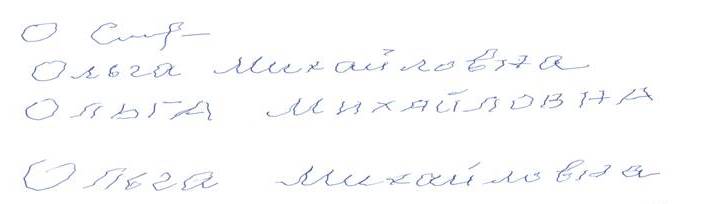 О
Ольга Михайловна
ОЛЬГА МИХАЙЛОВНА
Ольга Михайловна